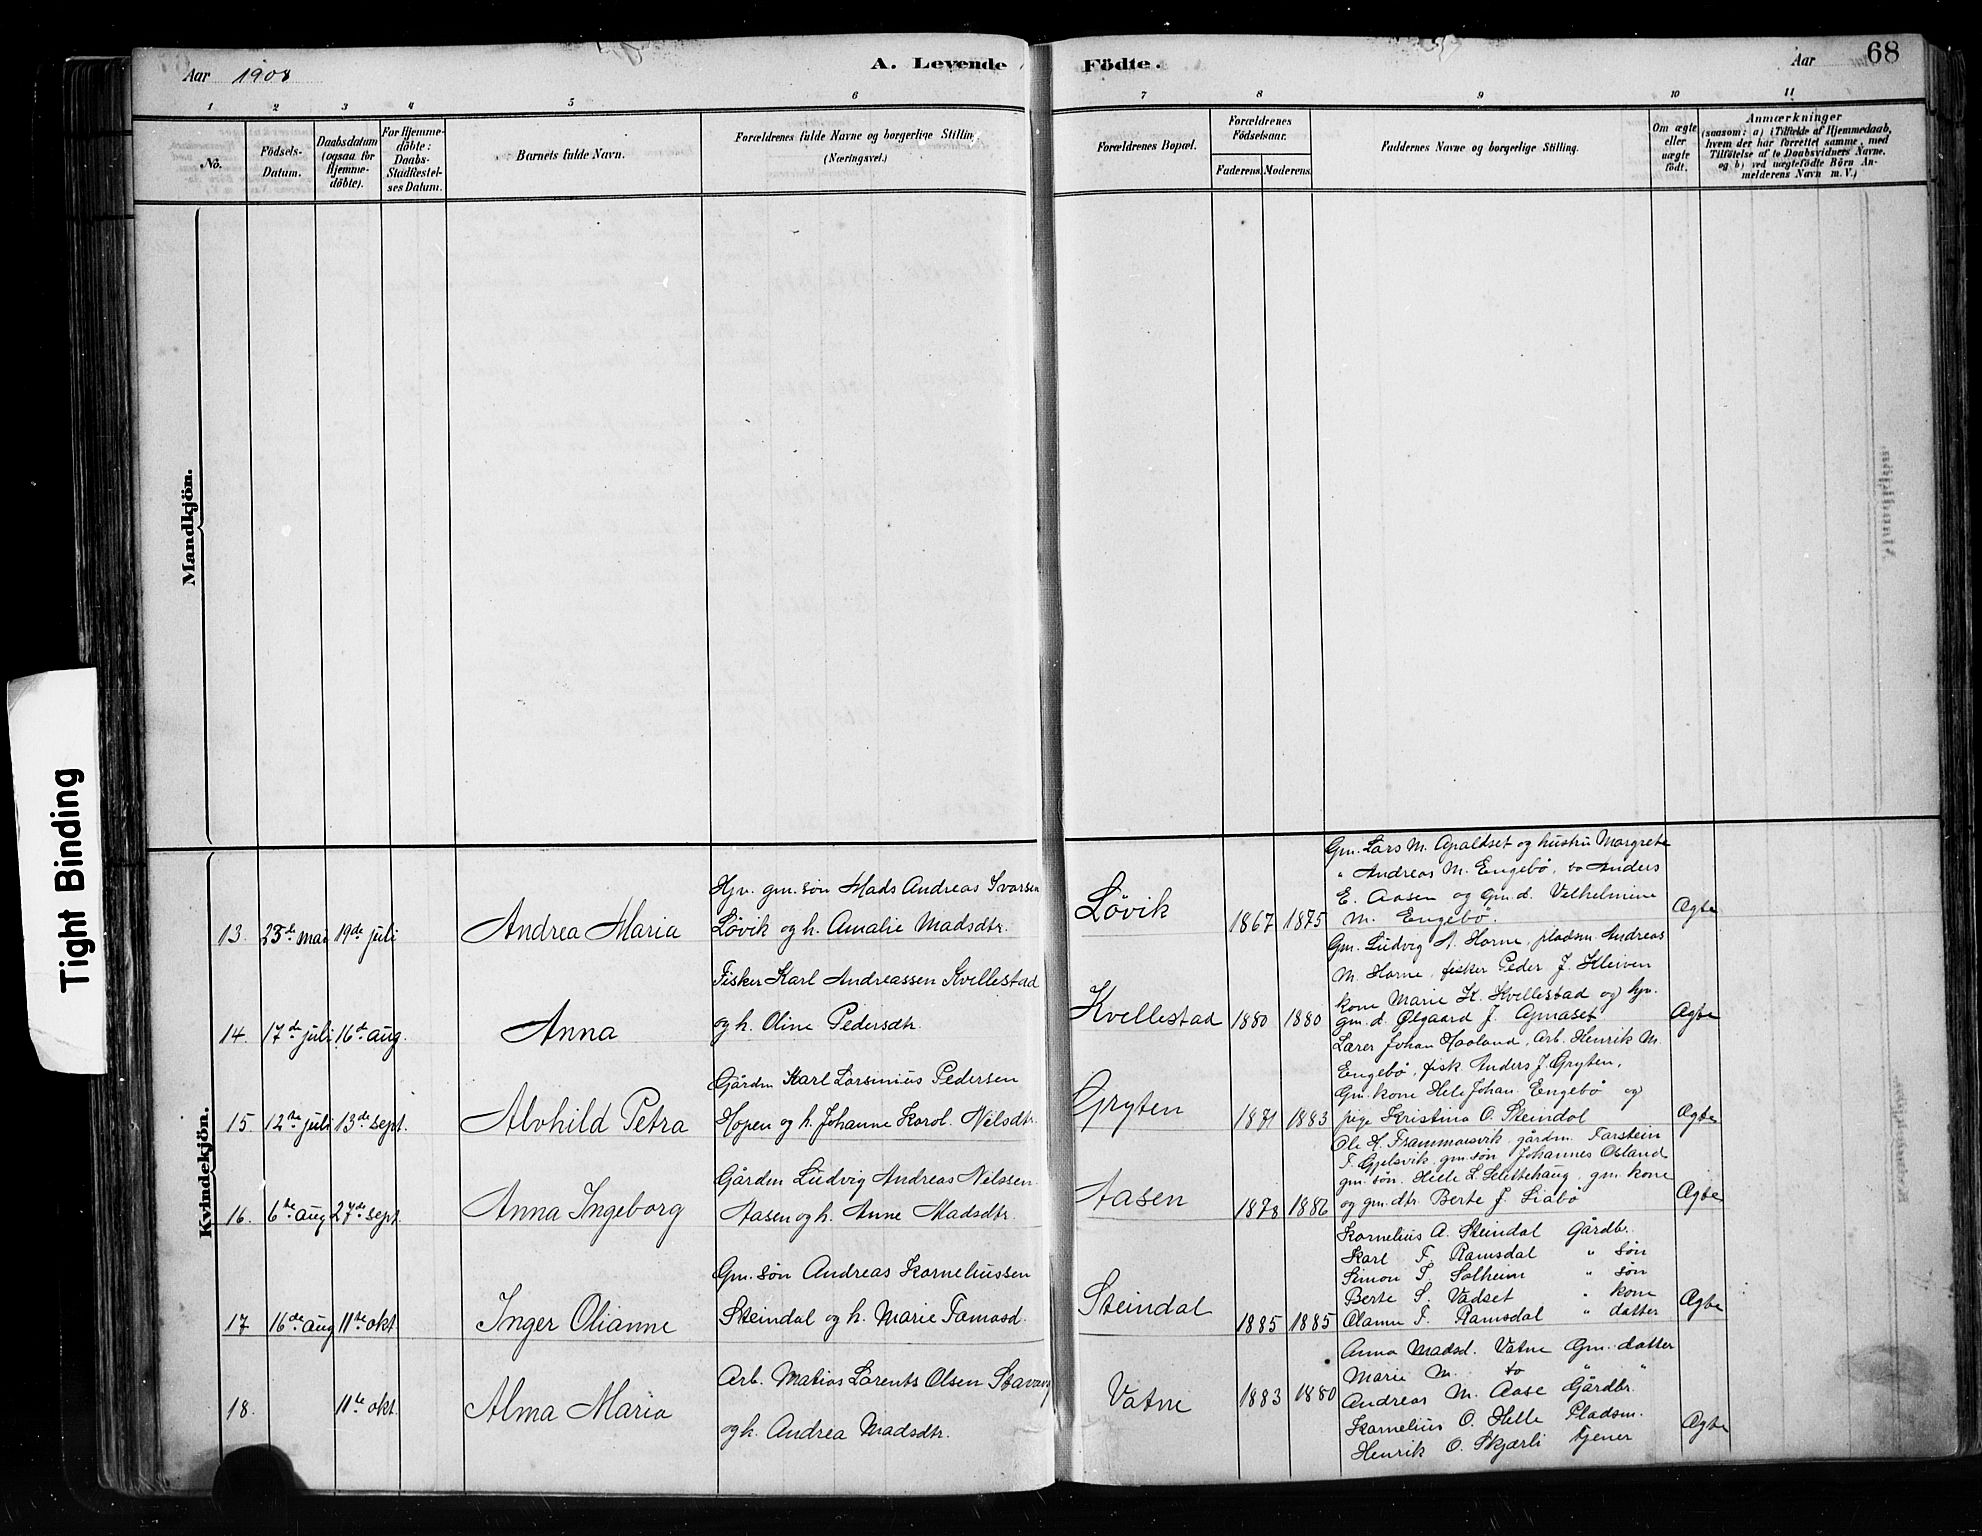 Aar 1908
A. Levende Födte.
Aar
68
1 2 3 4 5 6 7 8 9 10 11
No.
Födsels-Datum.
Daabsdatum (ogsaa for Hjemmedöbte).
For Hjemmedöbte: Daabs-Stadfestelses Datum.
Barnets fulde Navn.
Forældrenes fulde Navne og borgerlige Stilling (Næringsvei.)
Forældrenes Bopæl.
Forældrenes Födselsaar.
Faderens. Moderens.
Faddernes Navne og borgerlige Stilling.
Om ægte eller uægte födt.
Anmærkninger
(saasom: a) i Tilfælde af Hjemmedaab, hvem der har forrettet samme, med Tilföielse af to Daabsvidners Navne, og b) ved uægtefödte Börn Anmelderens Navn m. V.)
Mandkjön.
Kvindekjön.
Tight Binding
13. 23de mai 19de juli Andrea Maria
Hjv. gm. søn Mads Andreas Ivarsen
Løvik og h. Amalie Madsdtr.
Løvik 1867 1875
Gm. Lars M. Apaldset og hustru Margrete
" Andreas M. Engebø, Anders
E. Aasen og Gm. d. Vilhelmine
M. Engebø.
Ægte
14. 17de juli 16de aug. Anna
Fisker Karl Andreassen Kvellestad
og h. Oline Pedersdtr.
Kvellestad 1880 1880
Gm. Ludvig A. Horne, pladsm. Andreas
M. Horne, fisker Peder J. Kleiven
kone Marie K. Kvellestad og hjv.
gm. d. Ølgaard J.
Ægte
15. 12te juli 13de sept. Alvhild Petra
Gårdm Karl Lorsinius Pedersen
Hopen og h. Johanne Karol. Nilsdtr.
Gryten 1871 1883
Lærer Johan Haaland, Arb. Henrik M.
Engebø, fisk Anders J Gryten,
Gm. kone Hele Johan. Engebø og
pige Kristina O. Steindal
Ægte
16. 6te aug 27de sept. Anna Ingeborg
Gårdm Ludvig Andreas Nilssen
Aasen og h. Anne Madsdtr.
Aasen 1878 1886
Ole H. Frammarsvik, gårdm. Torstein
T. Gjelsvik, gm. søn Johannes
gm. søn. Helle L. gm. kone
og gm. dtr. Berte J. Liabø
Ægte
17 16de aug 11te okt. Inger Olianne
Gm. søn Andreas Korneliussen
Steindal og h. Marie Tomasd.
Steindal 1885 1885
Kornelius A. Steindal Gårdbr.
Karl T. Ramsdal " søn
Simon T. Solheim " søn
Berte S. Vadset " kone
Olanne T. Ramsdal " datter
Ægte
18. 11te okt. Alma Maria
Arb. Matias Lorents Olsen Stavang
og h. Andrea Madsdtr.
Vatne 1883 1880
Anna Madsd. Vatne Gm. datter
Marie M. to "
Andreas M. Aase Gårdbr.
Kornelius O. Helle Pladsm.
Henrik O. Skjærli tjener
Ægte